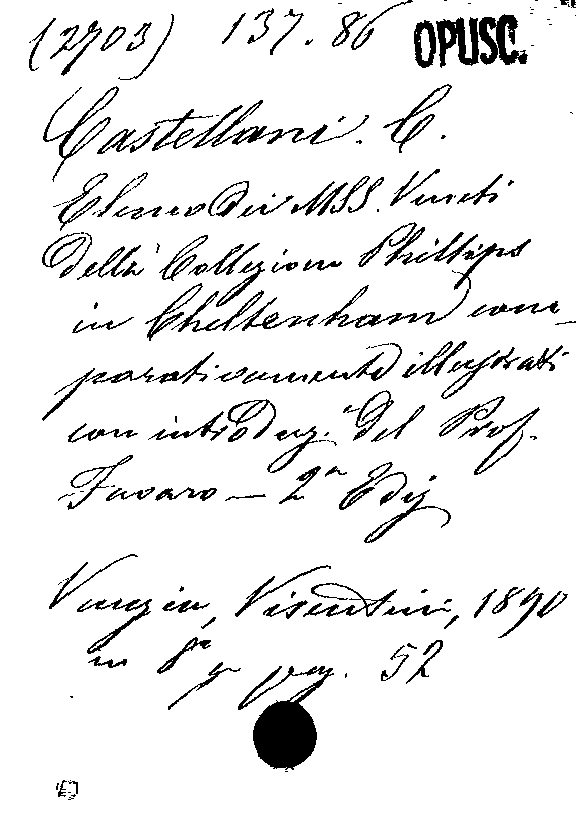 (2703) 137.86 OPUSC.
Castellani. C.
Elenco dei MSS. Veneti
della Collezione Phillips
in Cheltenham com-
parativamente illustrati
con introduz.e del Prof.
Favaro — 2a Ediz
Venezia, Visentini, 1890
in 8° pag. 52